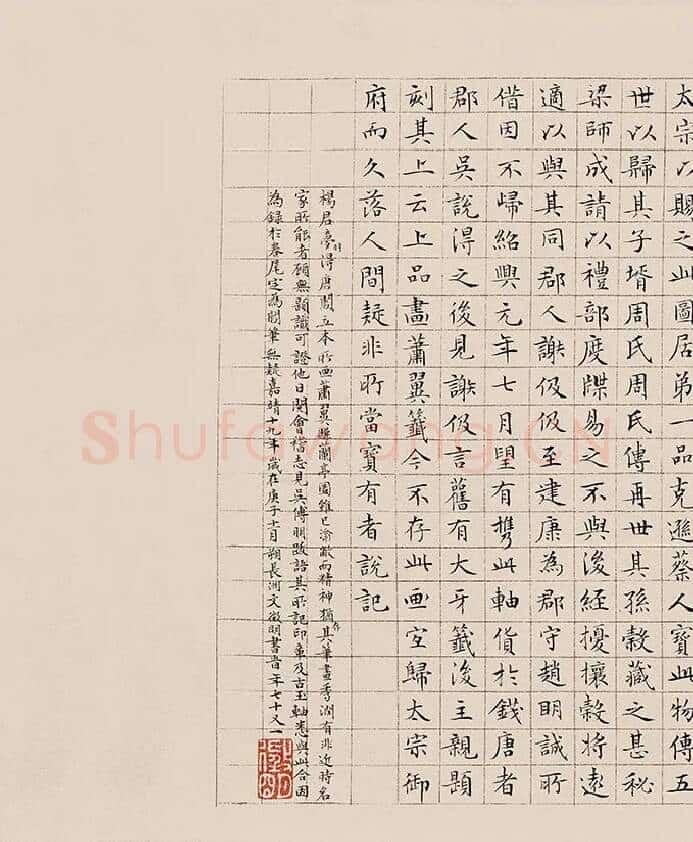 太宗以賜之此圖居弟一品克遜蔡人寶此物傳五
世以歸其子壻周氏周氏傳再世其孫穀藏之甚秘
梁師成請以禮部度牒易之不與後經擾攘穀將遠
適以與其同郡人謝伋伋至建康為郡守趙明誠所
借因不歸紹興元年七月望有攜此軸貨於錢唐者
郡人吳說得之後見謝伋言舊有大牙籤後主親題
刻其上云上品畫蕭翼籤今不存此画宜歸太宗御
府而久落人間疑非所當寶有者說記
楊君夢羽得唐閻立本所画蕭翼賺蘭亭圖雖已渝敝而精神猶存其筆畫秀潤有非近時名
家所能者顧無題識可證他日閱會稽志見吳傅朋跋語其所記印章及古玉軸悉與此合因
為錄於卷尾定為閻筆無疑嘉靖十九年歲在庚子十一月朔長洲文徵明書旹年七十又一
Shufawang.CN